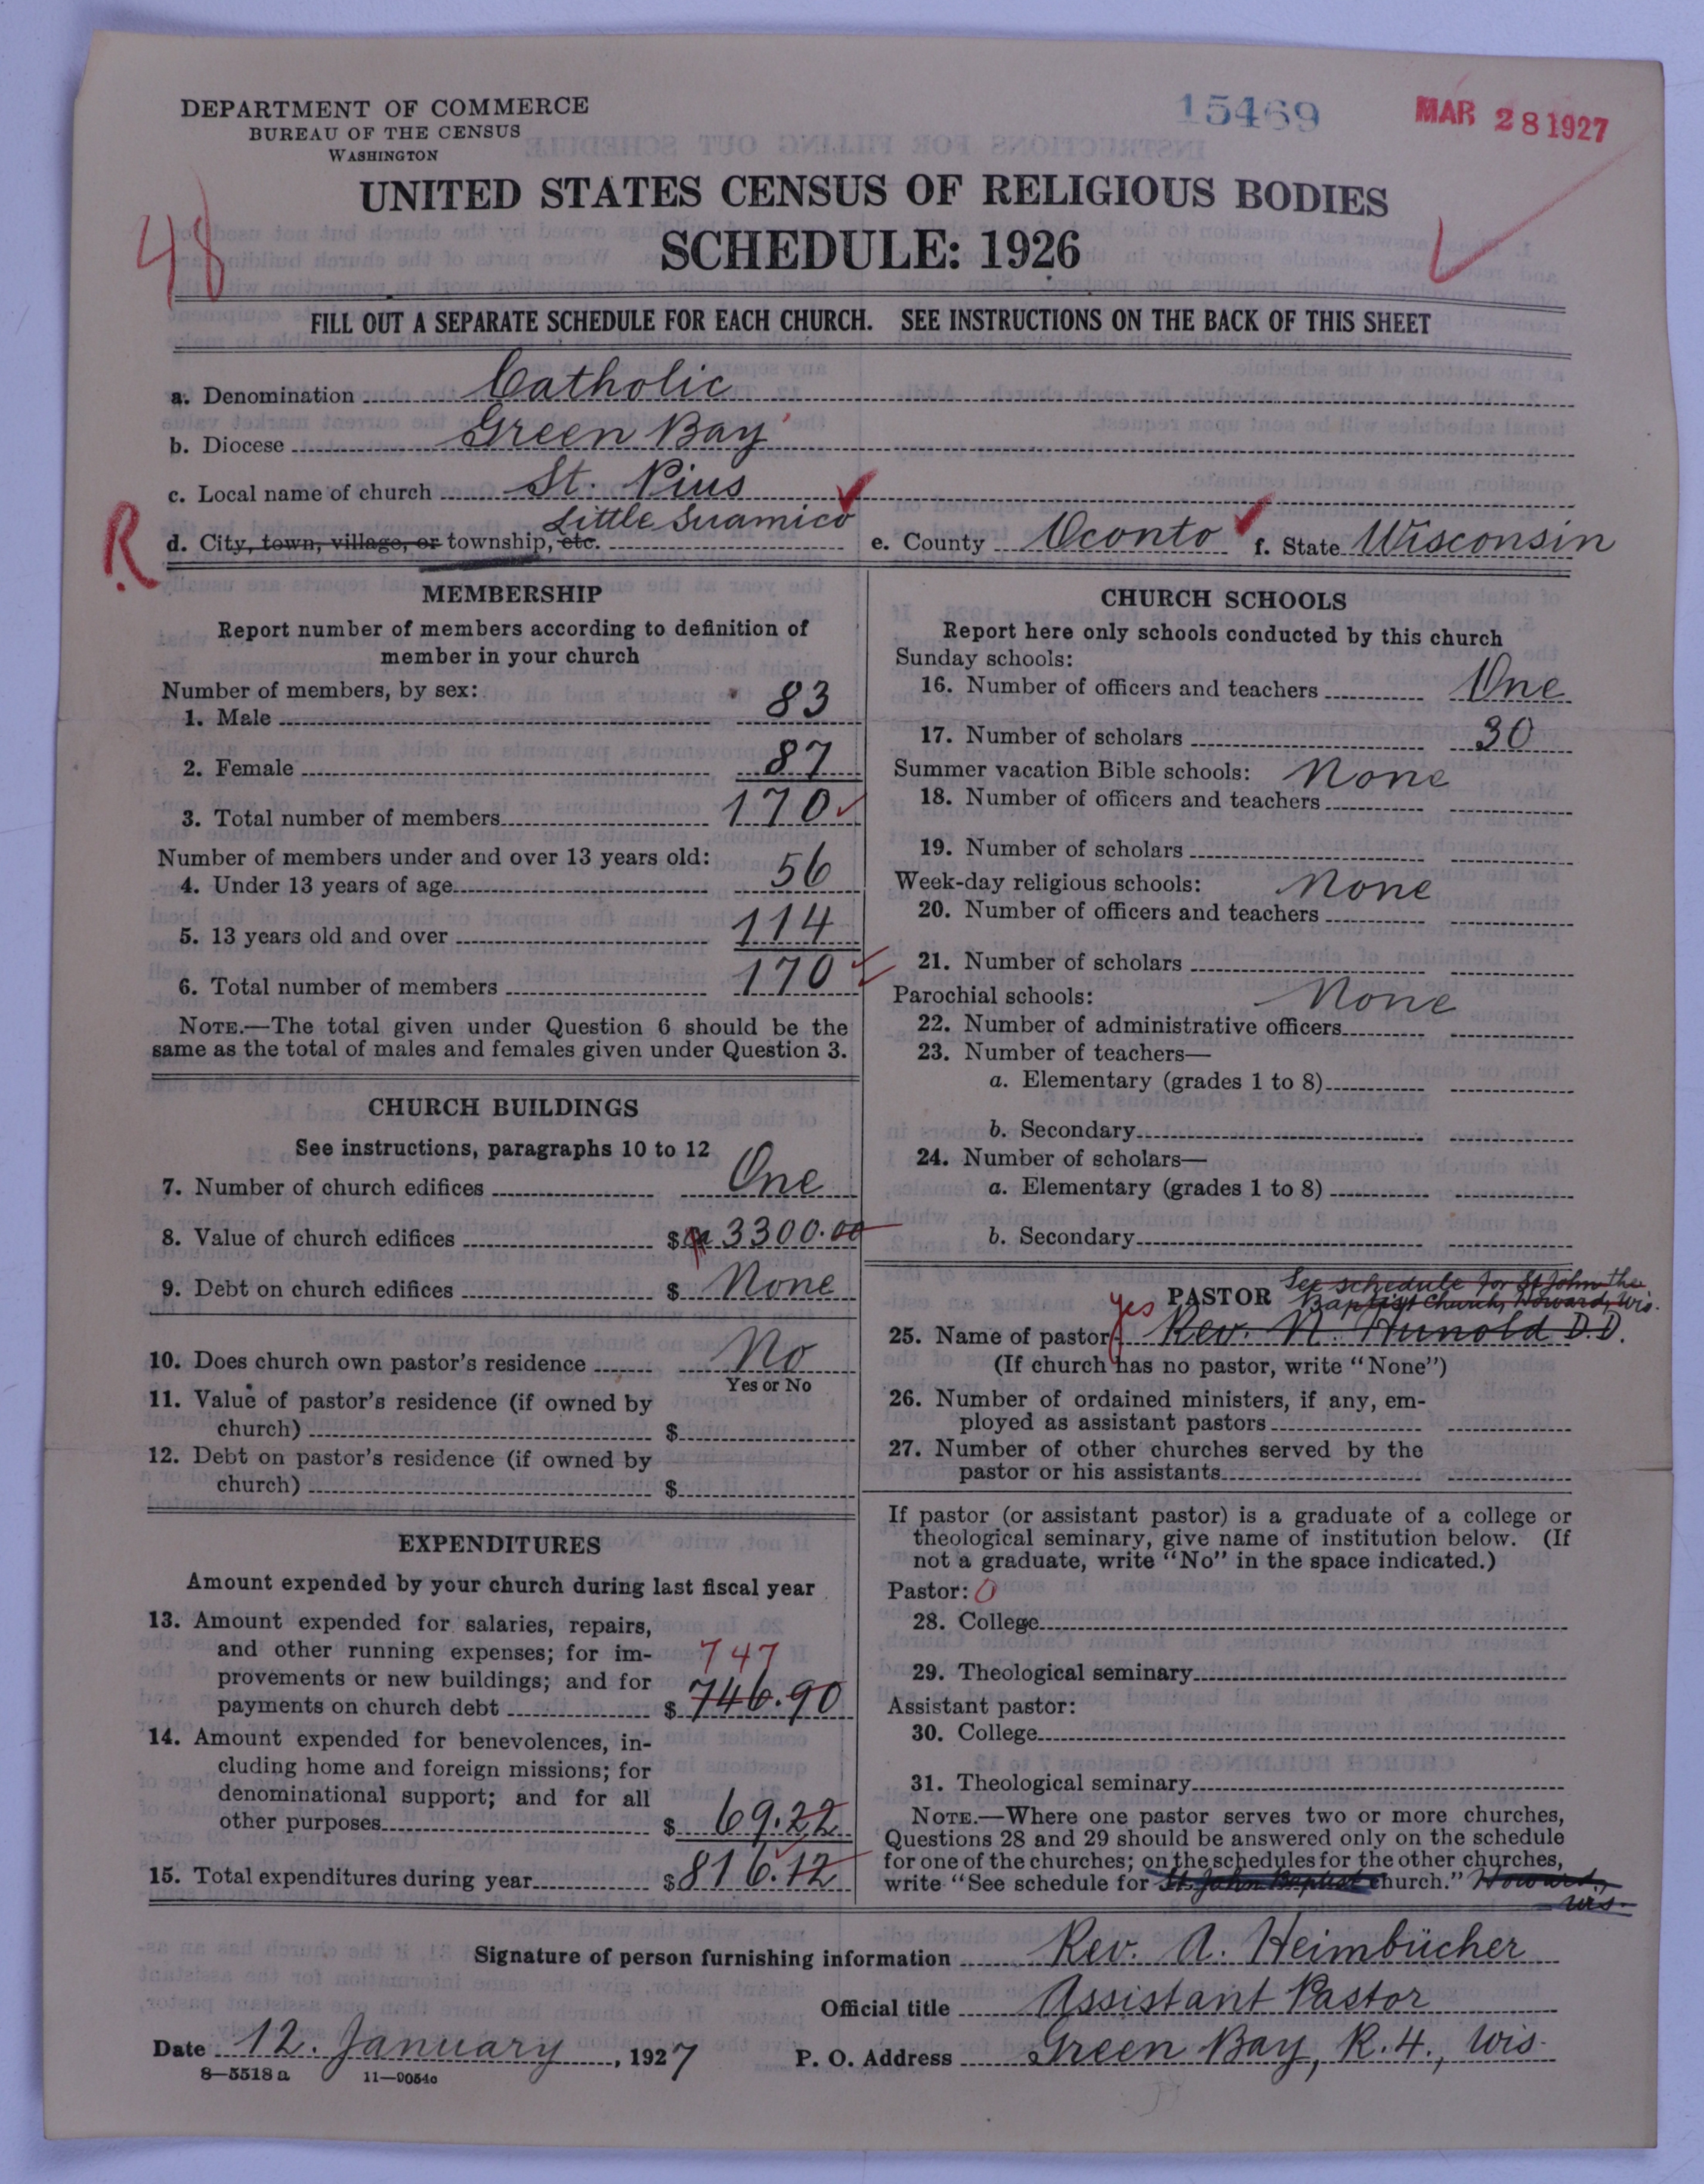 DEPARTMENT OF COMMERCE
BUREAU OF THE CENSUS
WASHINGTON
15469
MAR 28 1927
UNITED STATES CENSUS OF RELIGIOUS BODIES
SCHEDULE: 1926
48
FILL OUT A SEPARATE SCHEDULE FOR EACH CHURCH. SEE INSTRUCTIONS ON THE BACK OF THIS SHEET
a. Denomination Catholic
b. Diocese Green Bay
c. Local name of church St. Pius
R
Little Suamico
d. City, town, village, or township, etc.
e. County Oconto f. State Wisconsin
MEMBERSHIP
Report number of members according to definition of
member in your church
Number of members, by sex:
1. Male 83
2. Female 87
3. Total number of members 170
Number of members under and over 13 years old:
4. Under 13 years of age 56
5. 13 years old and over 114
6. Total number of members 170
NOTE.—The total given under Question 6 should be the
same as the total of males and females given under Question 3.
CHURCH BUILDINGS
See instructions, paragraphs 10 to 12
7. Number of church edifices One
8. Value of church edifices $ ca 3300.00
9. Debt on church edifices $ None
10. Does church own pastor's residence No
Yes or No
11. Value of pastor's residence (if owned by
church) $
12. Debt on pastor's residence (if owned by
church) $
EXPENDITURES
Amount expended by your church during last fiscal year
13. Amount expended for salaries, repairs,
and other running expenses; for im-
provements or new buildings; and for
747
payments on church debt $ 746.90
14. Amount expended for benevolences, in-
cluding home and foreign missions; for
denominational support; and for all
other purposes $ 69.22
15. Total expenditures during year $ 816.12
CHURCH SCHOOLS
Report here only schools conducted by this church
Sunday schools:
16. Number of officers and teachers One
17. Number of scholars 30
Summer vacation Bible schools: None
18. Number of officers and teachers
19. Number of scholars
Week-day religious schools: None
20. Number of officers and teachers
21. Number of scholars
Parochial schools: None
22. Number of administrative officers
23. Number of teachers—
a. Elementary (grades 1 to 8)
b. Secondary
24. Number of scholars—
a. Elementary (grades 1 to 8)
b. Secondary
PASTOR See schedule for St John the
Baptist Church, Howard, Wis.
yes
25. Name of pastor Rev. N. Hunold D.D.
(If church has no pastor, write "None")
26. Number of ordained ministers, if any, em-
ployed as assistant pastors
27. Number of other churches served by the
pastor or his assistants
If pastor (or assistant pastor) is a graduate of a college or
theological seminary, give name of institution below. (If
not a graduate, write "No" in the space indicated.)
Pastor: 0
28. College
29. Theological seminary
Assistant pastor:
30. College
31. Theological seminary
NOTE.—Where one pastor serves two or more churches,
Questions 28 and 29 should be answered only on the schedule
for one of the churches; on the schedules for the other churches,
write "See schedule for St. John Baptist church." Howard,
Wis.
Signature of person furnishing information Rev. A. Heimbücher
Official title Assistant Pastor
Date 12. January, 1927
P. O. Address Green Bay, R.4., Wis.
8—5518 a 11—9054c